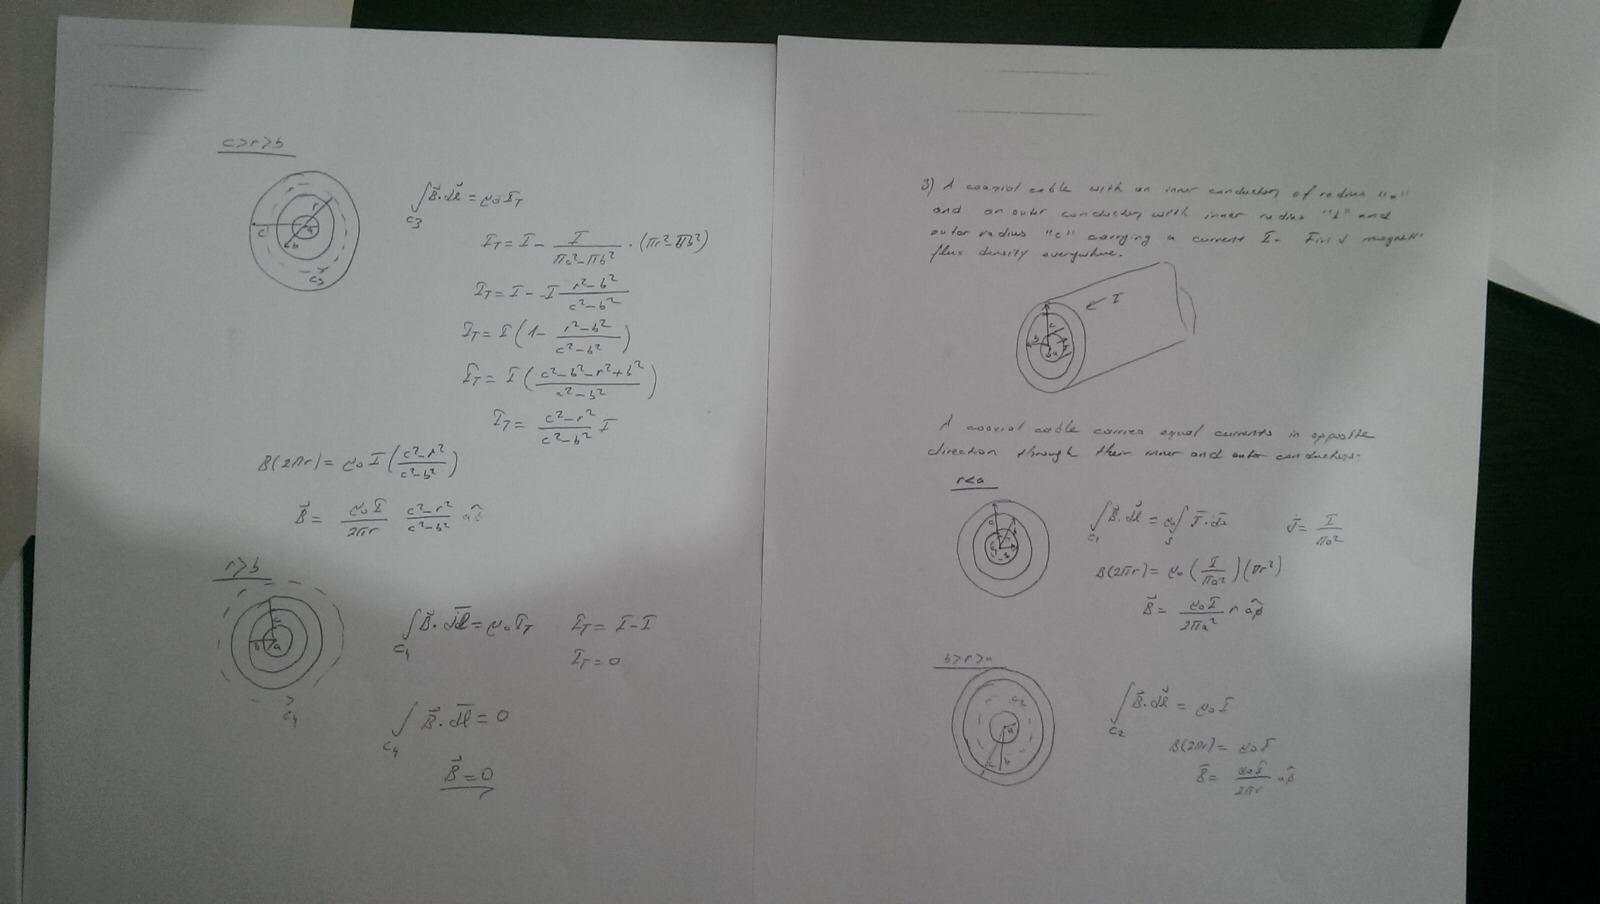 c>r>b
∫ B⃗·dl⃗ = μ₀ I_T
c₃
I_T = I - I/(πc²-πb²) · (πr²-πb²)
I_T = I - I (r²-b²)/(c²-b²)
I_T = I (1 - (r²-b²)/(c²-b²))
I_T = I ((c²-b²-r²+b²)/(c²-b²))
I_T = (c²-r²)/(c²-b²) I
B(2πr) = μ₀ I ((c²-r²)/(c²-b²))
B⃗ = μ₀I/(2πr) (c²-r²)/(c²-b²) aφ̂
r c b a c₃
r>b
∫ B⃗·dl = μ₀ I_T   I_T = I - I
c₄
I_T = 0
∫ B⃗·dl = 0
c₄
B⃗ = 0
c b a c₄
3) A coaxial cable with an inner conductor of radius "a"
and an outer conductor with inner radius "b" and
outer radius "c" carrying a current I. Find magnetic
flux density everywhere.
I
c b a
A coaxial cable carries equal currents in opposite
direction through their inner and outer conductors.
r<a
∫ B⃗·dl⃗ = μ₀ ∫ J·ds   J = I/(πa²)
c₁ s
B(2πr) = μ₀ (I/(πa²)) (πr²)
B⃗ = μ₀I/(2πa²) r aφ̂
b>r>a
∫ B⃗·dl⃗ = μ₀ I
c₂
B(2πr) = μ₀ I
B = μ₀I/(2πr) aφ̂
c₂ a c b